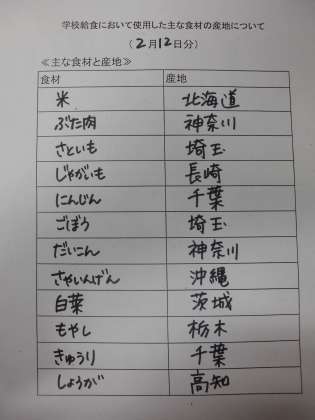 学校給食において使用した主な食材の産地について
(2月12日分)
≪主な食材と産地≫
食材 産地
米 北海道
ぶた肉 神奈川
さといも 埼玉
じゃがいも 長崎
にんじん 千葉
ごぼう 埼玉
だいこん 神奈川
さやいんげん 沖縄
白菜 茨城
もやし 栃木
きゅうり 千葉
しょうが 高知